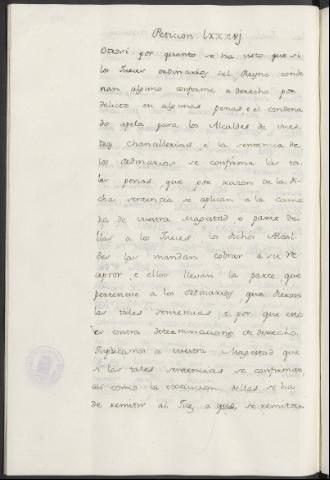 Peticion lxxxvj
Otrosi por quanto se ha visto que si
los Jueces ordinarios del Reyno conde
nan alguno conforme a derecho por
delicto en algunas penas e el condena
do apela para los Alcaldes de vues
tras chanallerias e la sentencia de
los ordinarios se confirma las ta
les penas que por razon de la di
cha sentencia se aplican a la cama
ra de vuestra Magestad o parte de
llas a los Jueces los dichos Alcal
des las mandan cobrar a su re
ceptor e ellos llevan la parte que
pertenece a los ordinarios que dieron
las tales sentencias e por que esto
es contra determinacion de derecho.
Suplicamos a vuestra Magestad que
si las tales sentencias se confirman,
asi como la execucion dellas se ha
de remitir al Juez a quo, se remitan